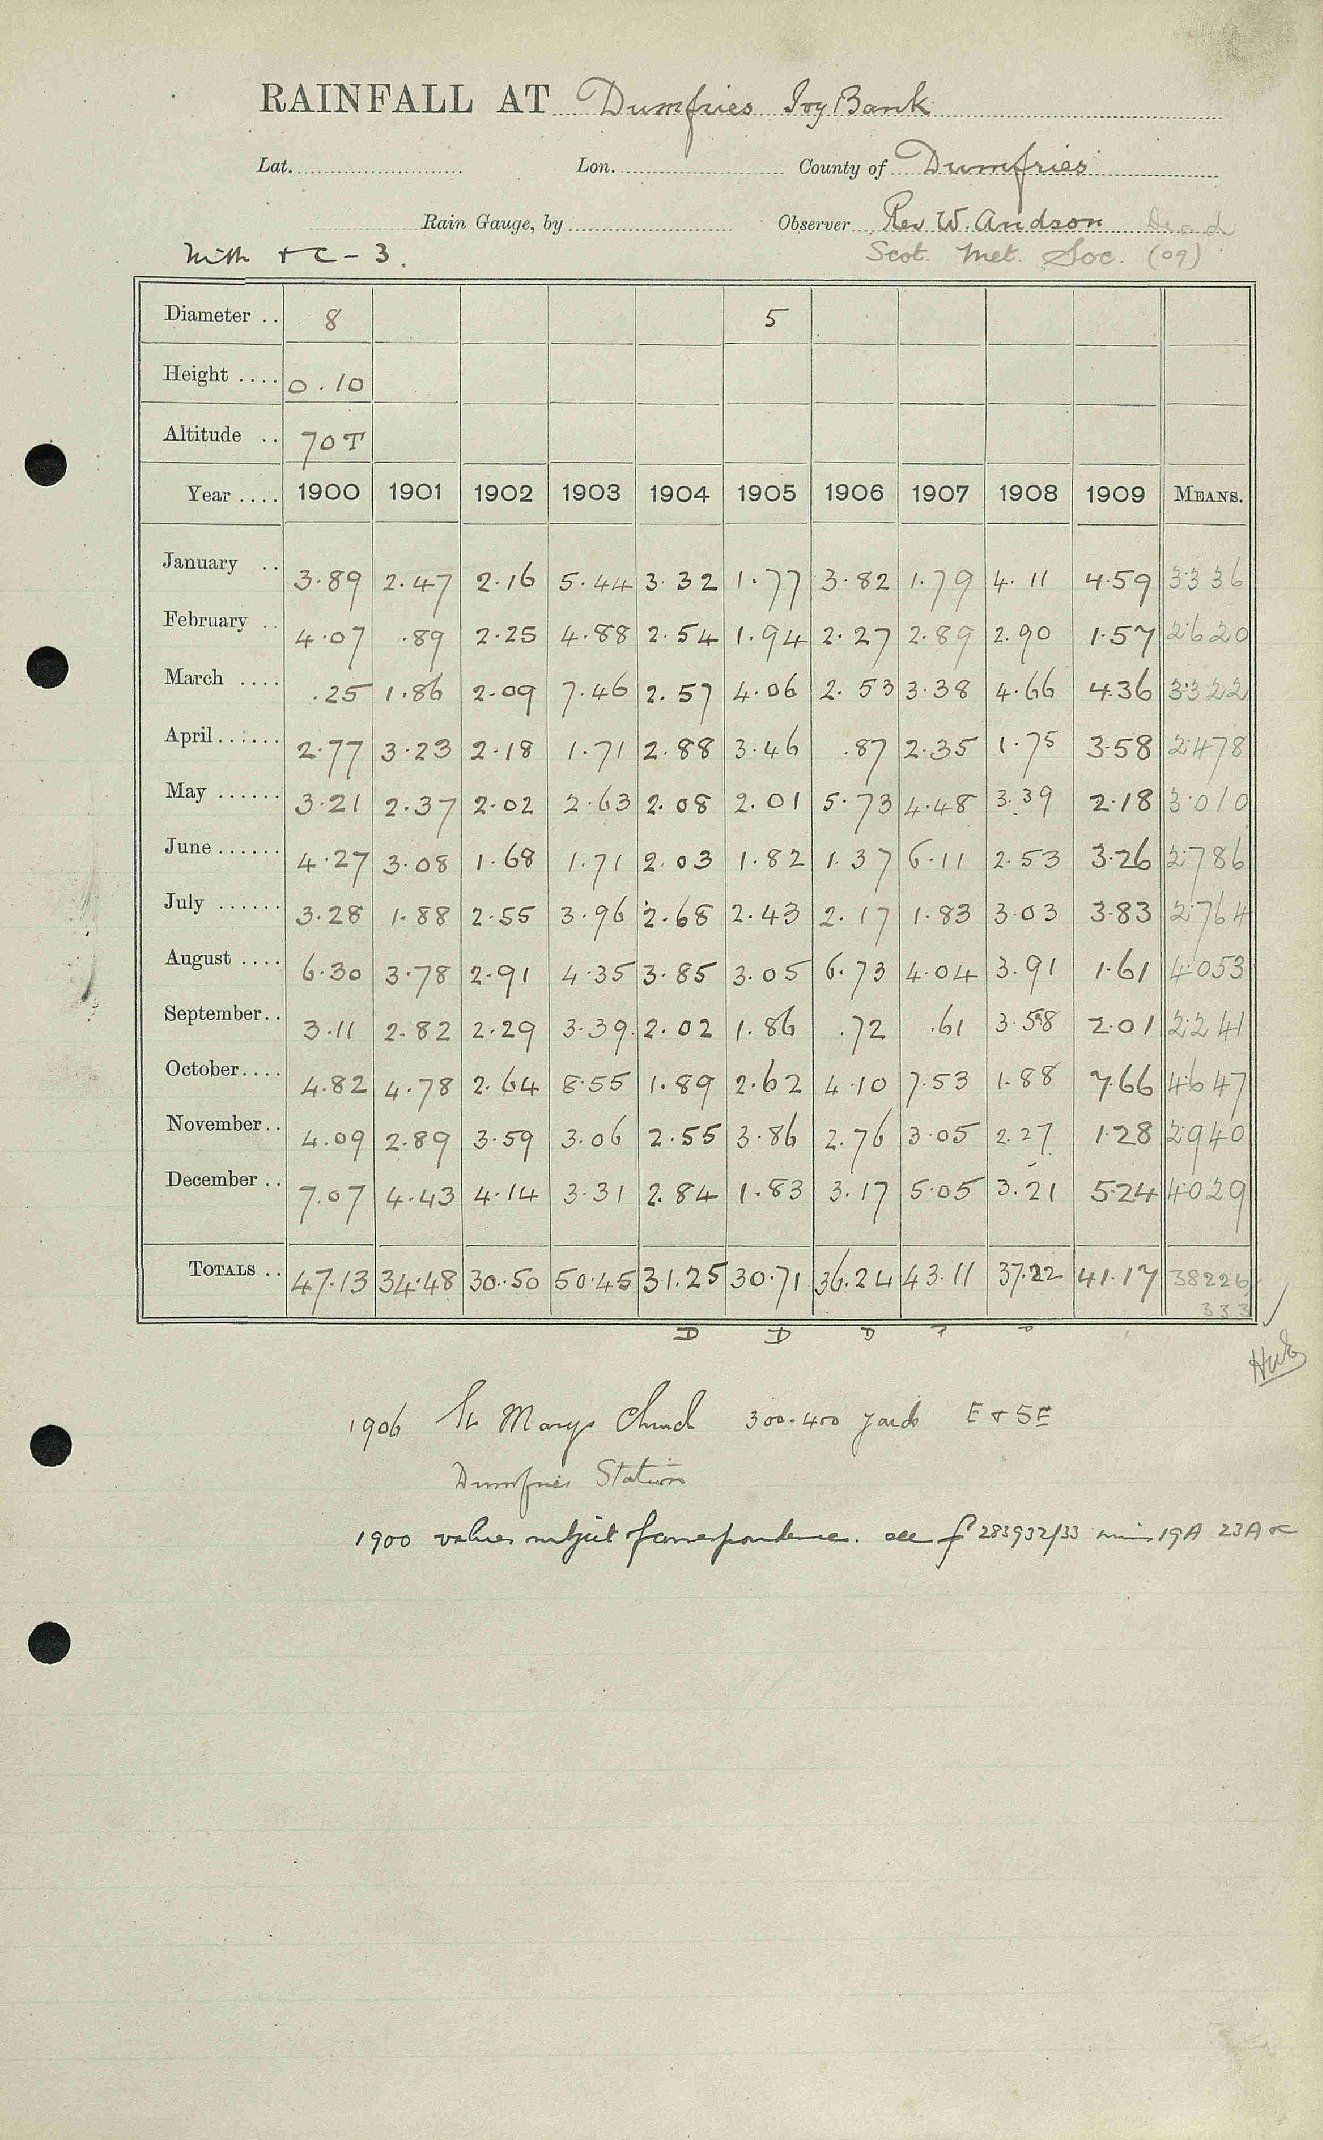 RAINFALL AT Dumfries Ivy Bank
Lat. Lon. County of Dumfries
Rain Gauge, by Observer Rev W. Andson Dead
Nith + C - 3. Scot. Met. Soc. (09)
Diameter .. 8 5
Height .... 0.10
Altitude .. 70T
Year .... 1900 1901 1902 1903 1904 1905 1906 1907 1908 1909 MEANS.
January .. 3.89 2.47 2.16 5.44 3.32 1.77 3.82 1.79 4.11 4.59 3336
February .. 4.07 .89 2.25 4.88 2.54 1.94 2.27 2.89 2.90 1.57 2620
March .... .25 1.86 2.09 7.46 2.57 4.06 2.53 3.38 4.66 4.36 3322
April ...... 2.77 3.23 2.18 1.71 2.88 3.46 .87 2.35 1.75 3.58 2478
May ...... 3.21 2.37 2.02 2.63 2.08 2.01 5.73 4.48 3.39 2.18 3010
June ...... 4.27 3.08 1.68 1.71 2.03 1.82 1.37 6.11 2.53 3.26 2786
July ...... 3.28 1.88 2.55 3.96 2.68 2.43 2.17 1.83 3.03 3.83 2764
August .... 6.30 3.78 2.91 4.35 3.85 3.05 6.73 4.04 3.91 1.61 4053
September.. 3.11 2.82 2.29 3.39 2.02 1.86 .72 .61 3.58 2.01 2241
October.... 4.82 4.78 2.64 8.55 1.89 2.62 4.10 7.53 1.88 7.66 4647
November.. 4.09 2.89 3.59 3.06 2.55 3.86 2.76 3.05 2.27 1.28 2940
December .. 7.07 4.43 4.14 3.31 2.84 1.83 3.17 5.05 3.21 5.24 4029
TOTALS .. 47.13 34.48 30.50 50.45 31.25 30.71 36.24 43.11 37.22 41.17 38226
333
D D D
1906 St Marys Church 300-400 yards E + SE
Dumfries Station
1900 values subject of correspondence. see f 283932/33 min 19A 23A